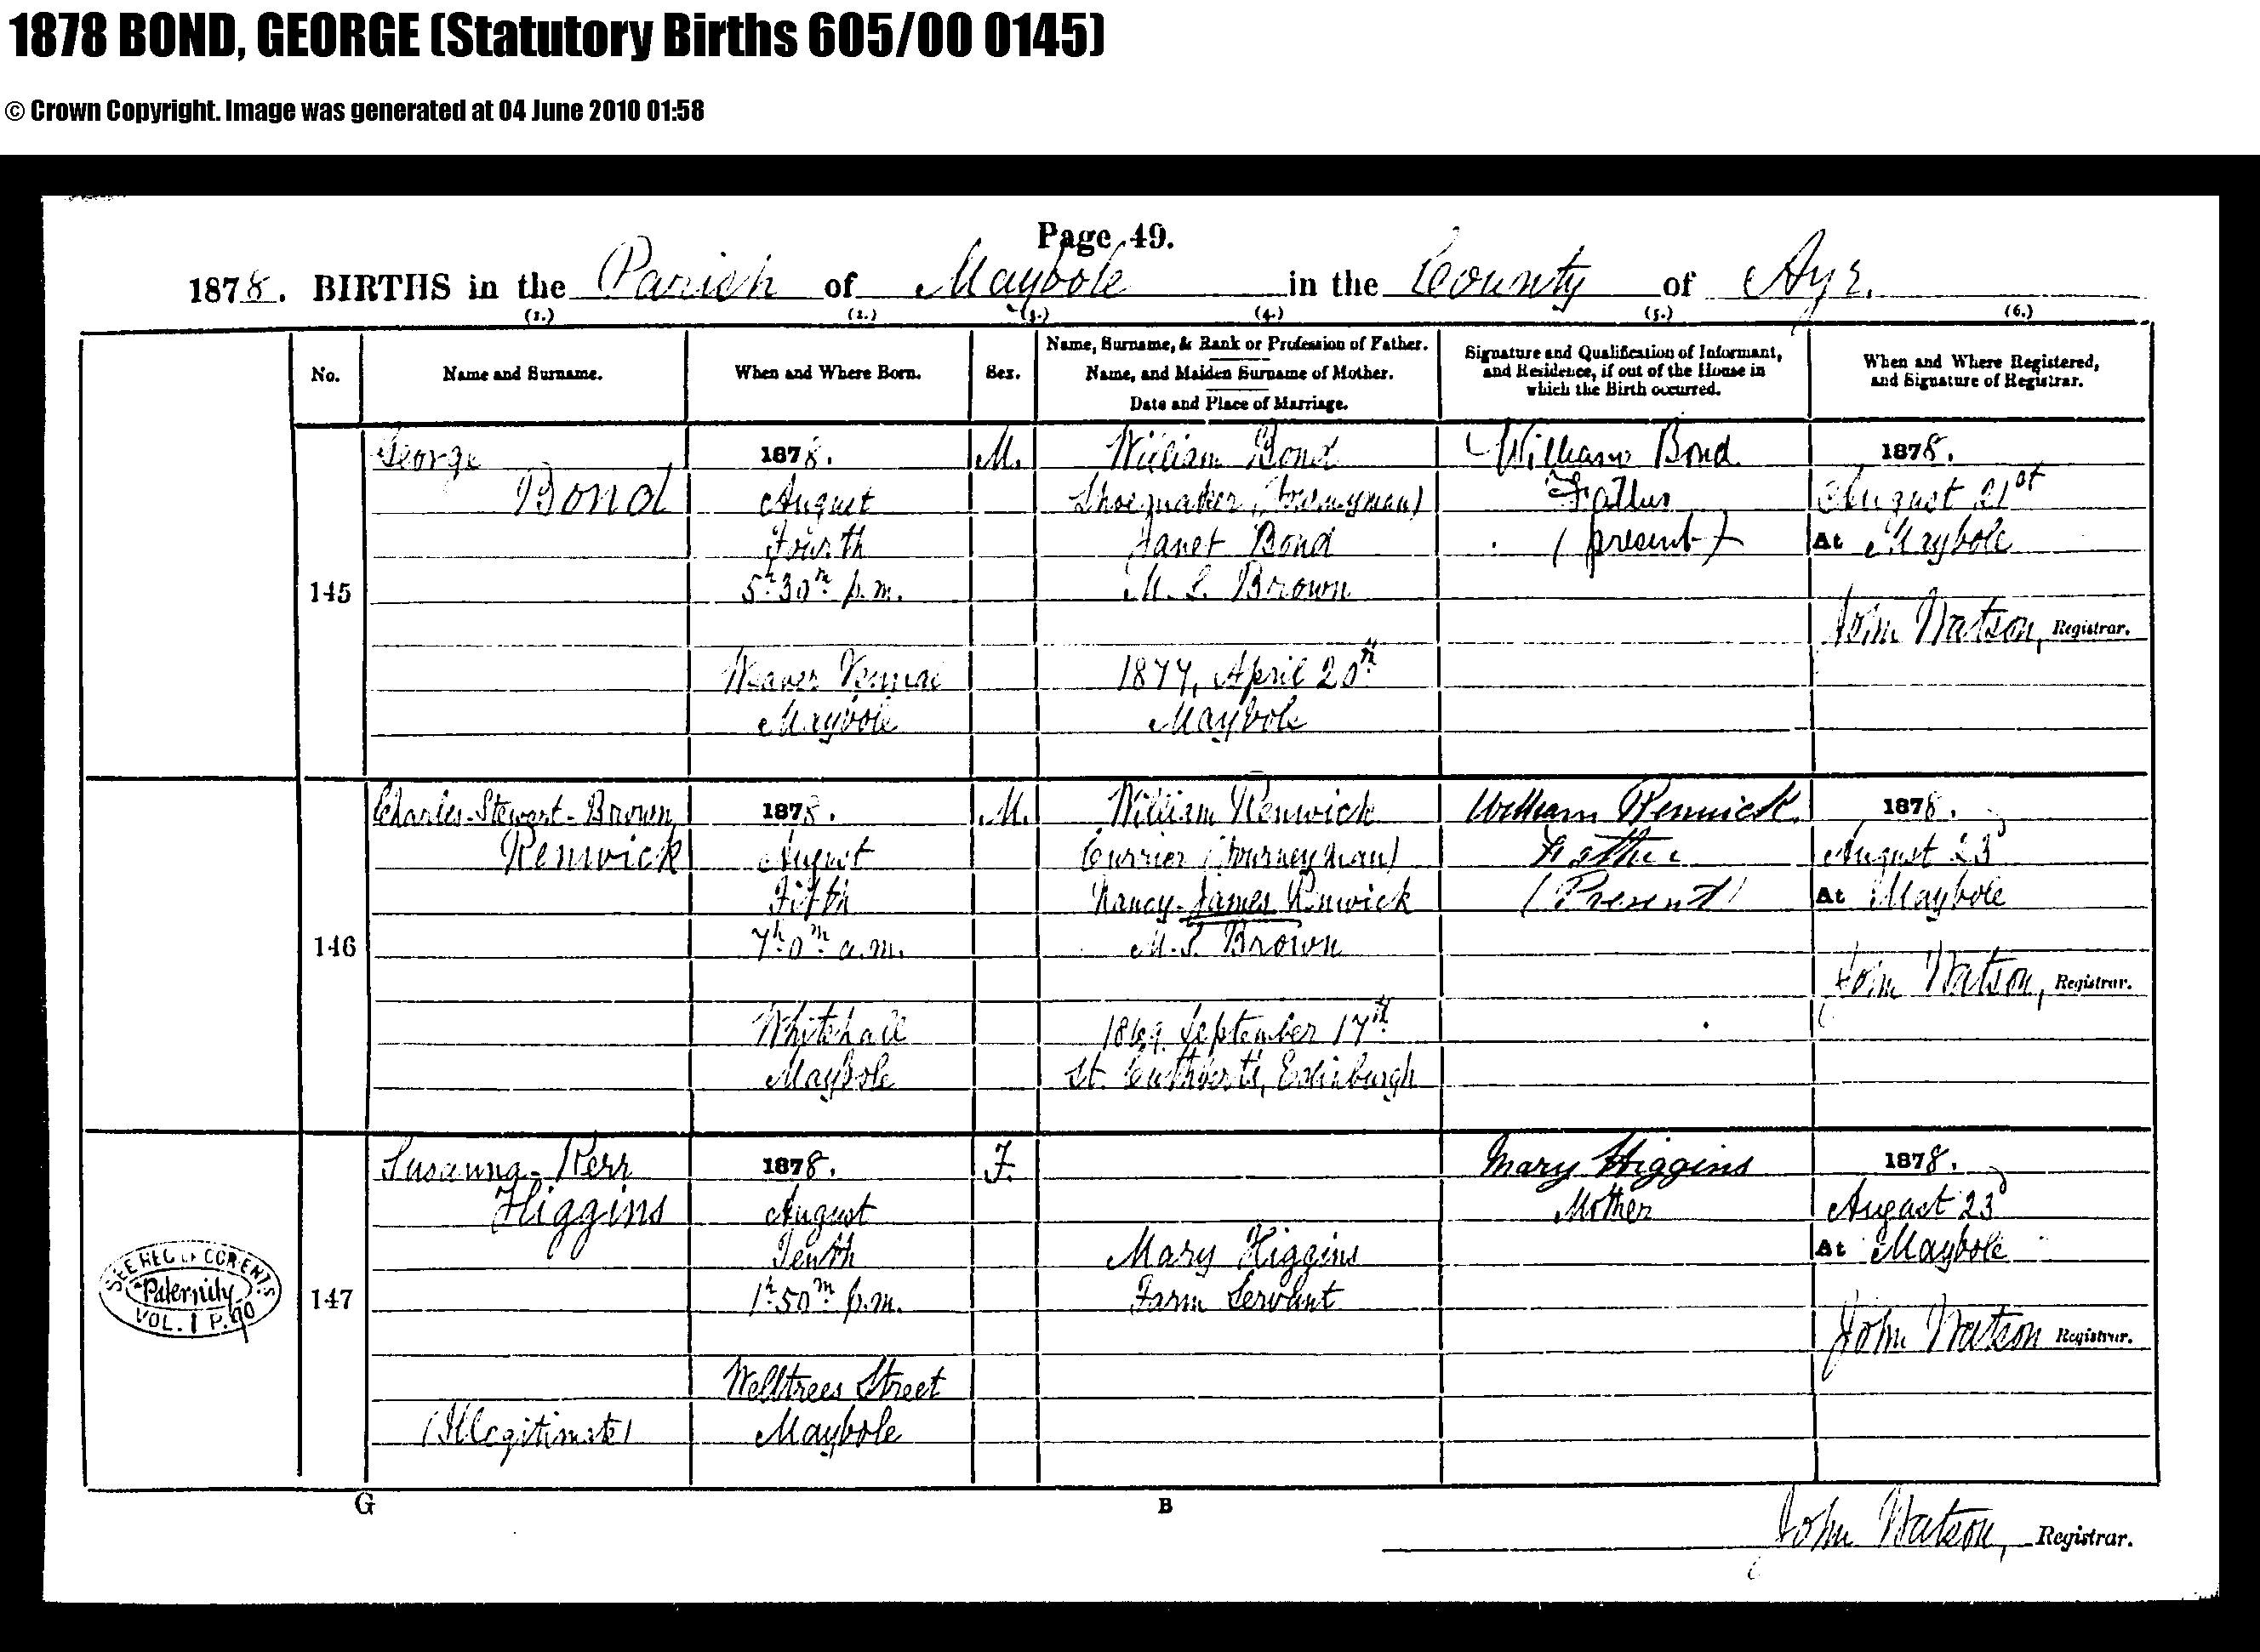 1878 BOND, GEORGE (Statutory Births 605/00 0145)
© Crown Copyright. Image was generated at 04 June 2010 01:58
Page 49.
1878. BIRTHS in the Parish of Maybole in the County of Ayr.
(1.) (2.) (3.) (4.) (5.) (6.)
No.
Name and Surname.
When and Where Born.
Sex.
Name, Surname, & Rank or Profession of Father.
Name, and Maiden Surname of Mother.
Date and Place of Marriage.
Signature and Qualification of Informant,
and Residence, if out of the House in
which the Birth occurred.
When and Where Registered,
and Signature of Registrar.
145
George
Bond
1878.
August
Fourth
5h 30m p.m.
Weaver Vennal
Maybole
M.
William Bond
Shoemaker (Journeyman)
Janet Bond
M.S. Brown
1877, April 20th
Maybole
William Bond
Father
(present)
1878.
August 21st
At Maybole
John Watson, Registrar.
146
Charles-Stewart-Brown
Renwick
1878.
August
Fifth
7h 0m a.m.
Whitehall
Maybole
M.
William Renwick
Currier (Journeyman)
Nancy-James Renwick
M.S. Brown
1869, September 17th
St. Cuthbert's, Edinburgh
William Renwick
Father
(Present)
1878.
August 23d
At Maybole
John Watson, Registrar.
SEE REG OF COR. ENTS
Paternity
VOL. 1 P. 90
147
Susanna-Kerr
Higgins
(Illegitimate)
1878.
August
Tenth
1h 50m p.m.
Welltrees Street
Maybole
F.
Mary Higgins
Farm Servant
Mary Higgins
Mother
1878.
August 23d
At Maybole
John Watson Registrar.
G B
John Watson, Registrar.